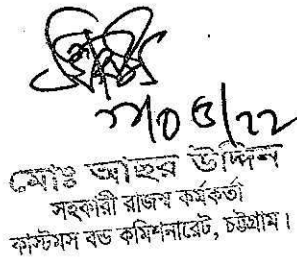 মোঃ আছর উদ্দিন
সহকারী রাজস্ব কর্মকর্তা
কাস্টমস বন্ড কমিশনারেট, চট্টগ্রাম।